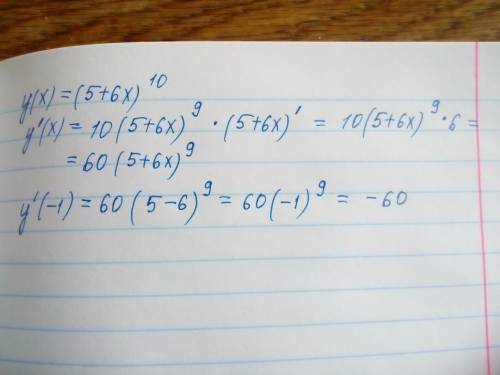 y(x) = (5+6x)^10
y'(x) = 10(5+6x)^9 · (5+6x)' = 10(5+6x)^9 · 6 =
= 60(5+6x)^9
y'(-1) = 60(5-6)^9 = 60(-1)^9 = -60